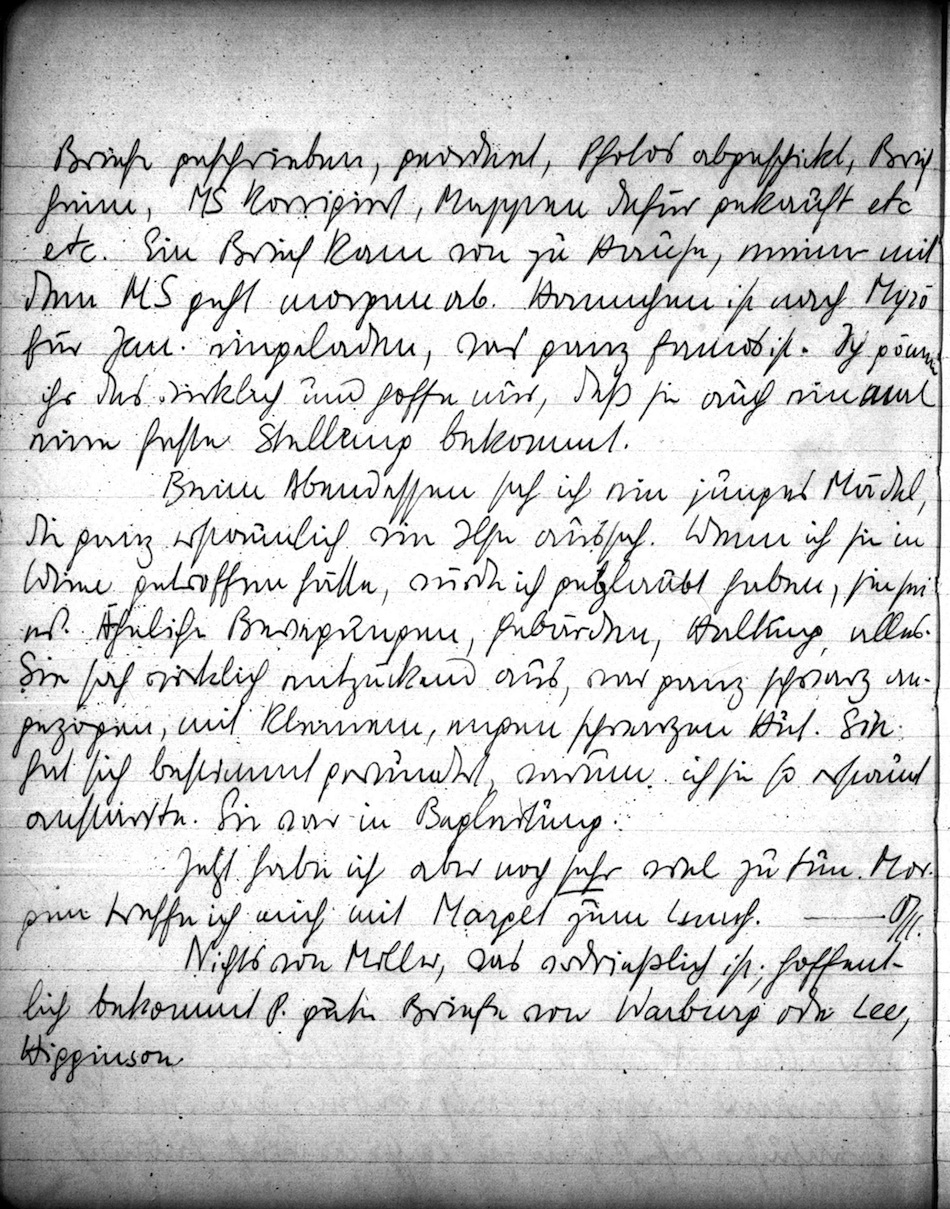 Briefe geschrieben, geordnet, Photos abgeschickt, Brief
heim, MS korrigiert, Mappen dafür gekauft etc
etc. Ein Brief kam von zu Hause, meiner mit
dem MS geht morgen ab. Hannchen ist nach
für Jan. eingeladen, was ganz famos ist. Ich gönne
ihr das wirklich und hoffe nur, daß sie auch einmal
eine feste Stellung bekommt.
Beim Abendessen sah ich ein junges Mädel,
die ganz erstaunlich wie Ilse aussah. Wenn ich sie in
Wien getroffen hätte, würde ich geglaubt haben, sie sei
es. Ähnliche Bewegungen, Gebärden, Haltung, alles.
Sie sah wirklich entzückend aus, war ganz schwarz an-
gezogen, mit kleinem, engen schwarzen Hut. Sie
hat sich bestimmt gewundert, warum ich sie so erstaunt
anstarrte. Sie war in Begleitung.
Jetzt habe ich aber noch sehr viel zu tun. Mor-
gen treffe ich mich mit Marget zum Lunch. —
Nichts von Moller, was verdrießlich ist; hoffent-
lich bekommt P. gute Briefe von Warburg oder Lee,
Higginson